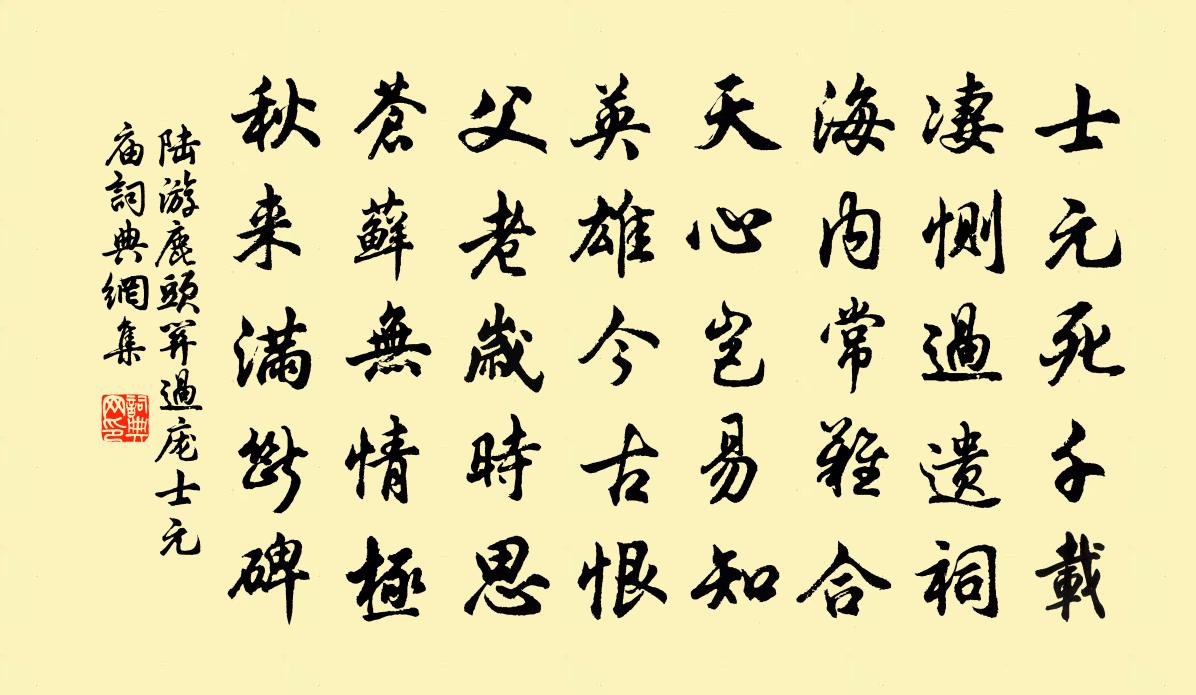 士元死千載
淒惻過遺祠
海內常難合
天心豈易知
英雄今古恨
父老歲時思
蒼蘚無情極
秋来滿斷碑
陆游鹿頭關過庞士元
庙詞典網集
詞典网印